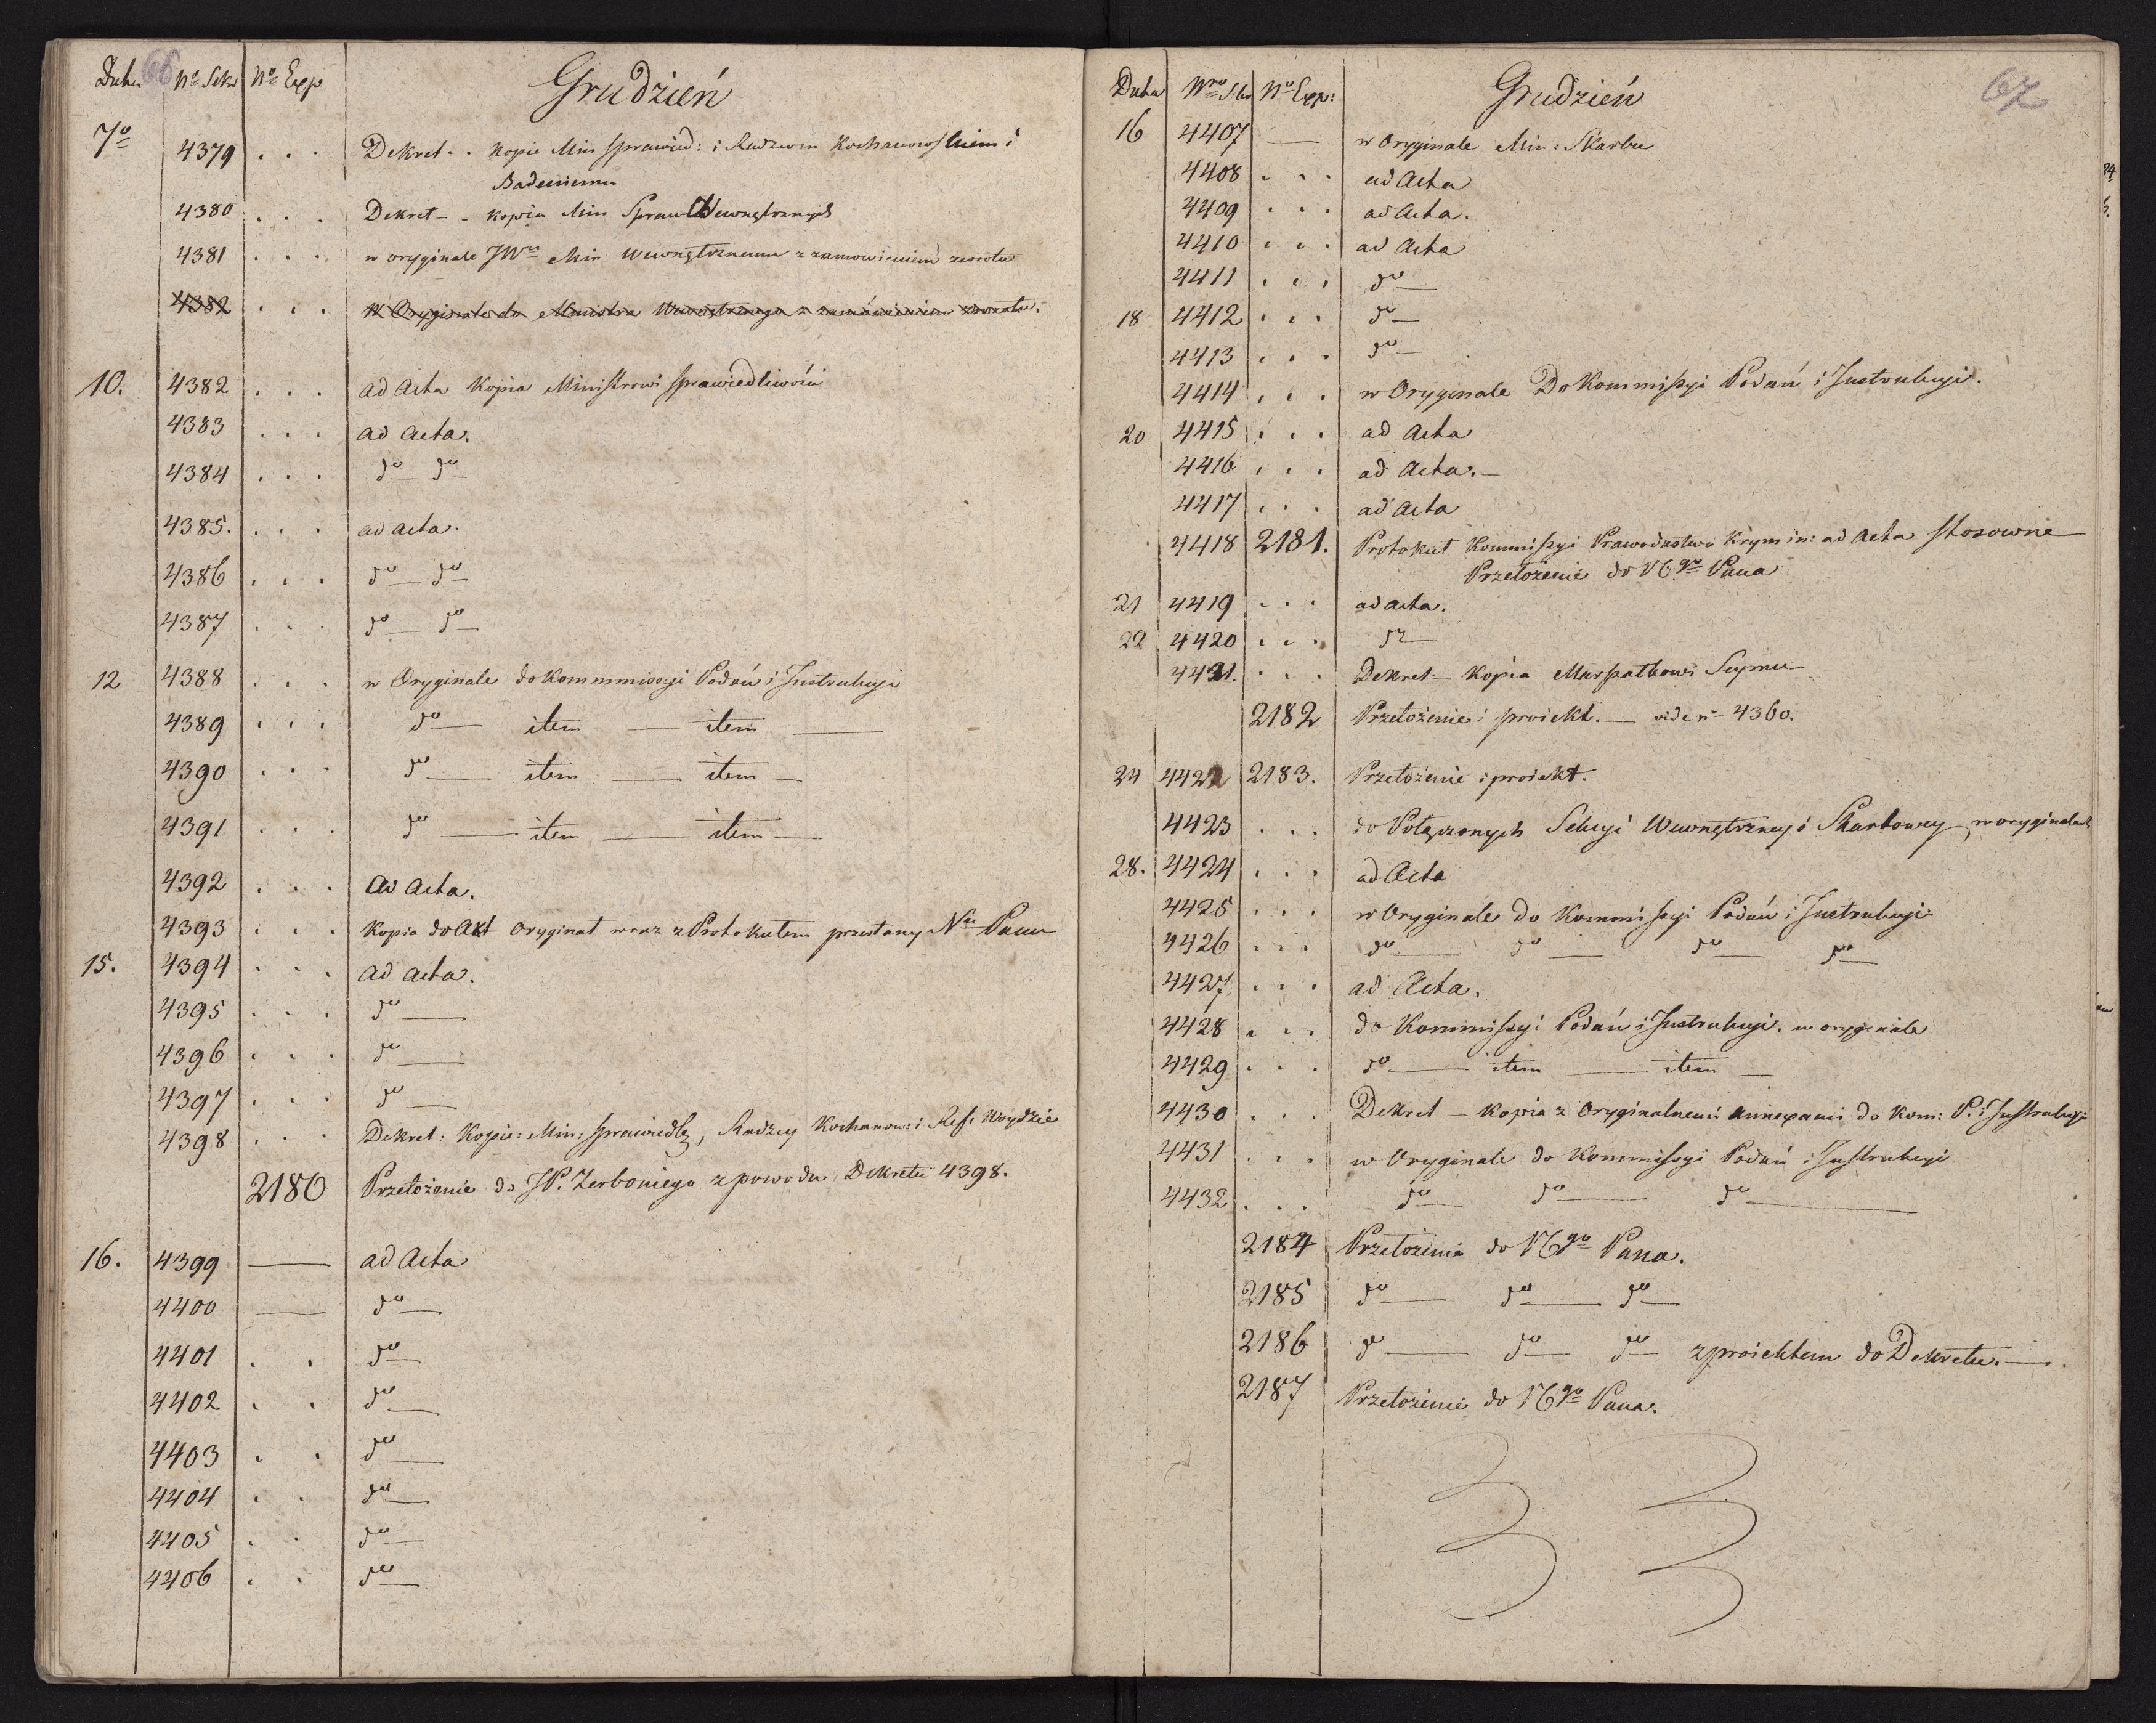 66
Data Nº Sekr Nº Exp Grudzień
7º 4379 . . . Dekret - - kopie Min Sprawied: i Radzcom Kochanowskiem i
Badeniemu
4380 . . . Dekret - - kopia Min Spraw Wewnętrznych
4381 . . . w oryginale JWu Min Wewnętrznemu z zamowieniem zwrotu
4382 . . . W Oryginale do Ministra Wewnętrznego z zamówieniem zwrotu.
10. 4382 . . . ad Acta Kopia Ministrowi Sprawiedliwości
4383 . . . ad acta.
4384 . . . dº dº
4385. . . . ad acta.
4386 . . . dº dº
4387 . . . dº dº
12 4388 . . . w Oryginale do Kommmissyi Podań i Instrukcyi
4389 . . . dº — item — item —
4390 . . . dº — item — item —
4391 . . . dº — item — item —
4392 . . . ad acta.
4393 . . . Kopia do Akt Oryginał wraz z Protokułem przesłany Nu Panu
15. 4394 . . . ad acta.
4395 . . . dº —
4396 . . . dº —
4397 . . . dº —
4398 . . . Dekret: Kopie: Min: Sprawiedl, Radzcy Kochanow: i Ref: Woydzie
2180 Przełożenie do JP. Zerboniego z powodu Dekretu 4398.
16. 4399 — ad Acta
4400 — dº —
4401 . . dº —
4402 . . dº —
4403 . . dº —
4404 . . dº —
4405 . . dº —
4406 . . dº —
67
Data Nro Skr Nº Exp: Grudzień
16 4407 — w Oryginale Min: Skarbu
4408 . . . ad Acta
4409 . . . ad Acta.
4410 . . . ad Acta
4411 . . . dº —
18 4412 . . . dº —
4413 . . . dº —
4414 . . . w Oryginale Do Kommissyi Podań i Instrukcyi.
20 4415 . . . ad Acta
4416 . . . ad Acta. —
4417 . . . ad Acta
4418 2181. Protokuł Kommissyi Prawodastwa Krymin: ad Acta stosowne
Przełożenie do Ngo Pana
21 4419 . . . ad acta.
22 4420 . . . dº —
4421. . . . Dekret — Kopia Marszałkowi Seymu
2182 Przełożenie i proiekt. — vide nº 4360.
24 4422 2183. Przełożenie i proiekt.
4423 . . . do Połączonych Sekcyi Wewnętrzney i Skarbowey w oryginale
28. 4424 . . . ad Acta
4425 . . . w Oryginale do Kommissyi Podań i Instrukcyi
4426 . . . dº — dº — dº — dº —
4427 . . . ad Acta.
4428 . . . do Kommissyi Podań i Instrukcyi. w oryginale
4429 . . . dº — item — item —
4430 . . . Dekret — Kopia z Oryginalnemi annexami do Kom: P. i Instrukcyi
4431 . . . w Oryginale do Kommissyi Podań i Instrukcyi
4432 . . . dº — dº — dº —
2184 Przełożenie do Ngo Pana.
2185 dº — dº — dº —
2186 dº — dº — dº — z proiektem do Dekretu. —
2187 Przełożenie do Ngo Pana.